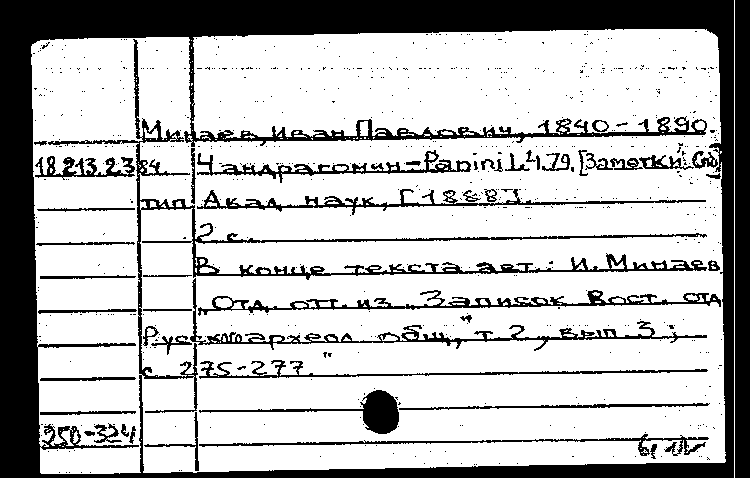 Минаев, Иван Павлович, 1840-1890.
18.213.2.384. Чандрагомин=Panini I,4,79. [Заметки. Спб]
тип. Акад. наук, [1888].
2 с.
В конце текста авт.: И. Минаев
„Отд. отт. из „Записок Вост. отд.
Русского археол. общ.," т. 2, вып. 3;
с. 275-277."
250-324